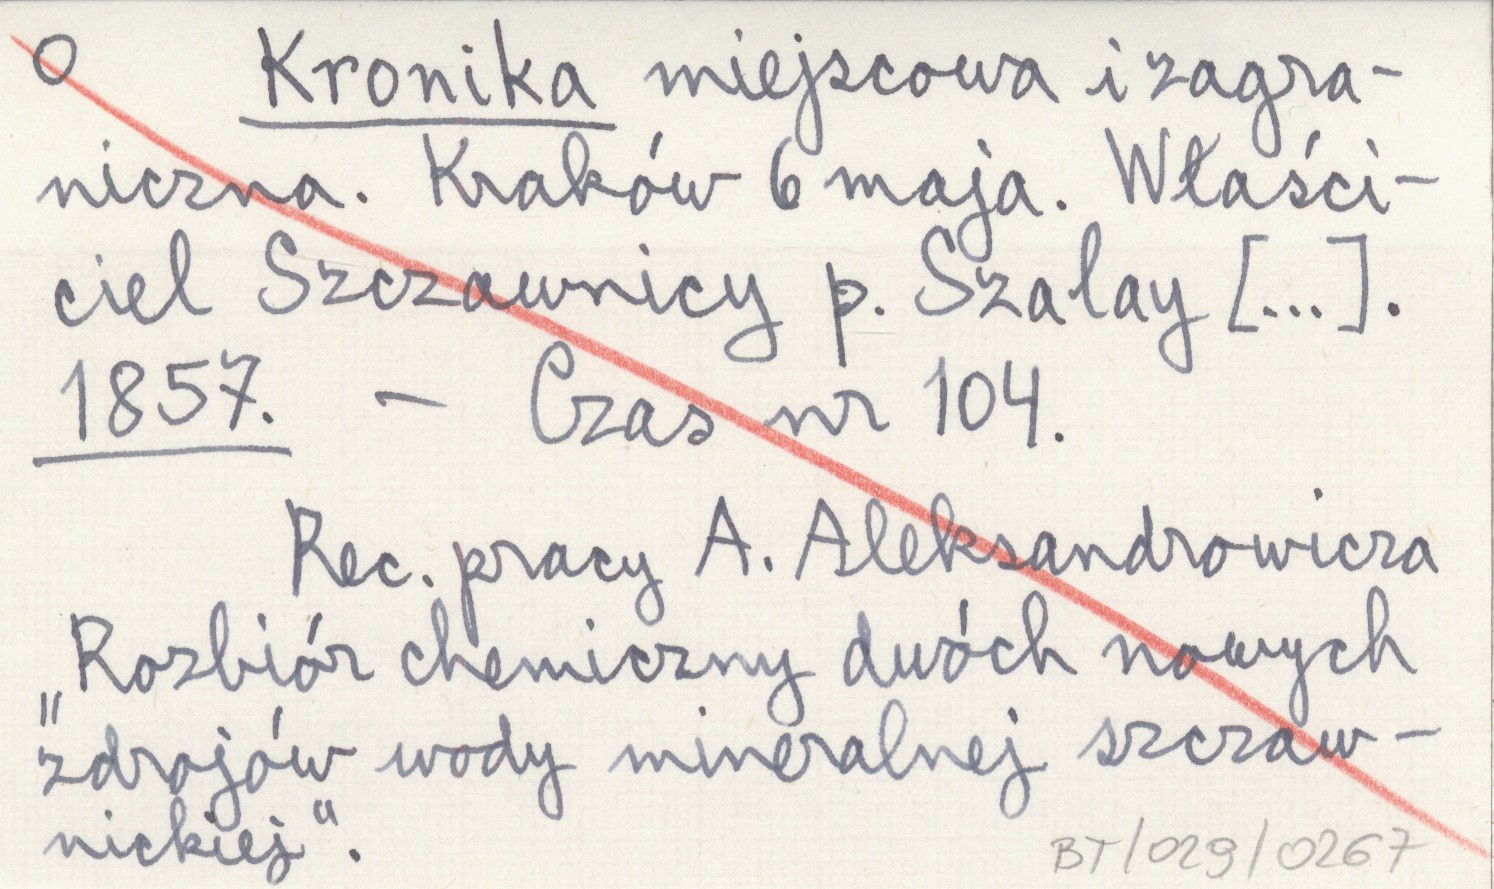 O Kronika miejscowa i zagra-
niczna. Kraków 6 maja. Właści-
ciel Szczawnicy p. Szalay [...].
1857. - Czas nr 104.
Rec. pracy A. Aleksandrowicza
"Rozbiór chemiczny dwóch nowych
zdrojów wody mineralnej szczaw-
nickiej".
BT/029/0267